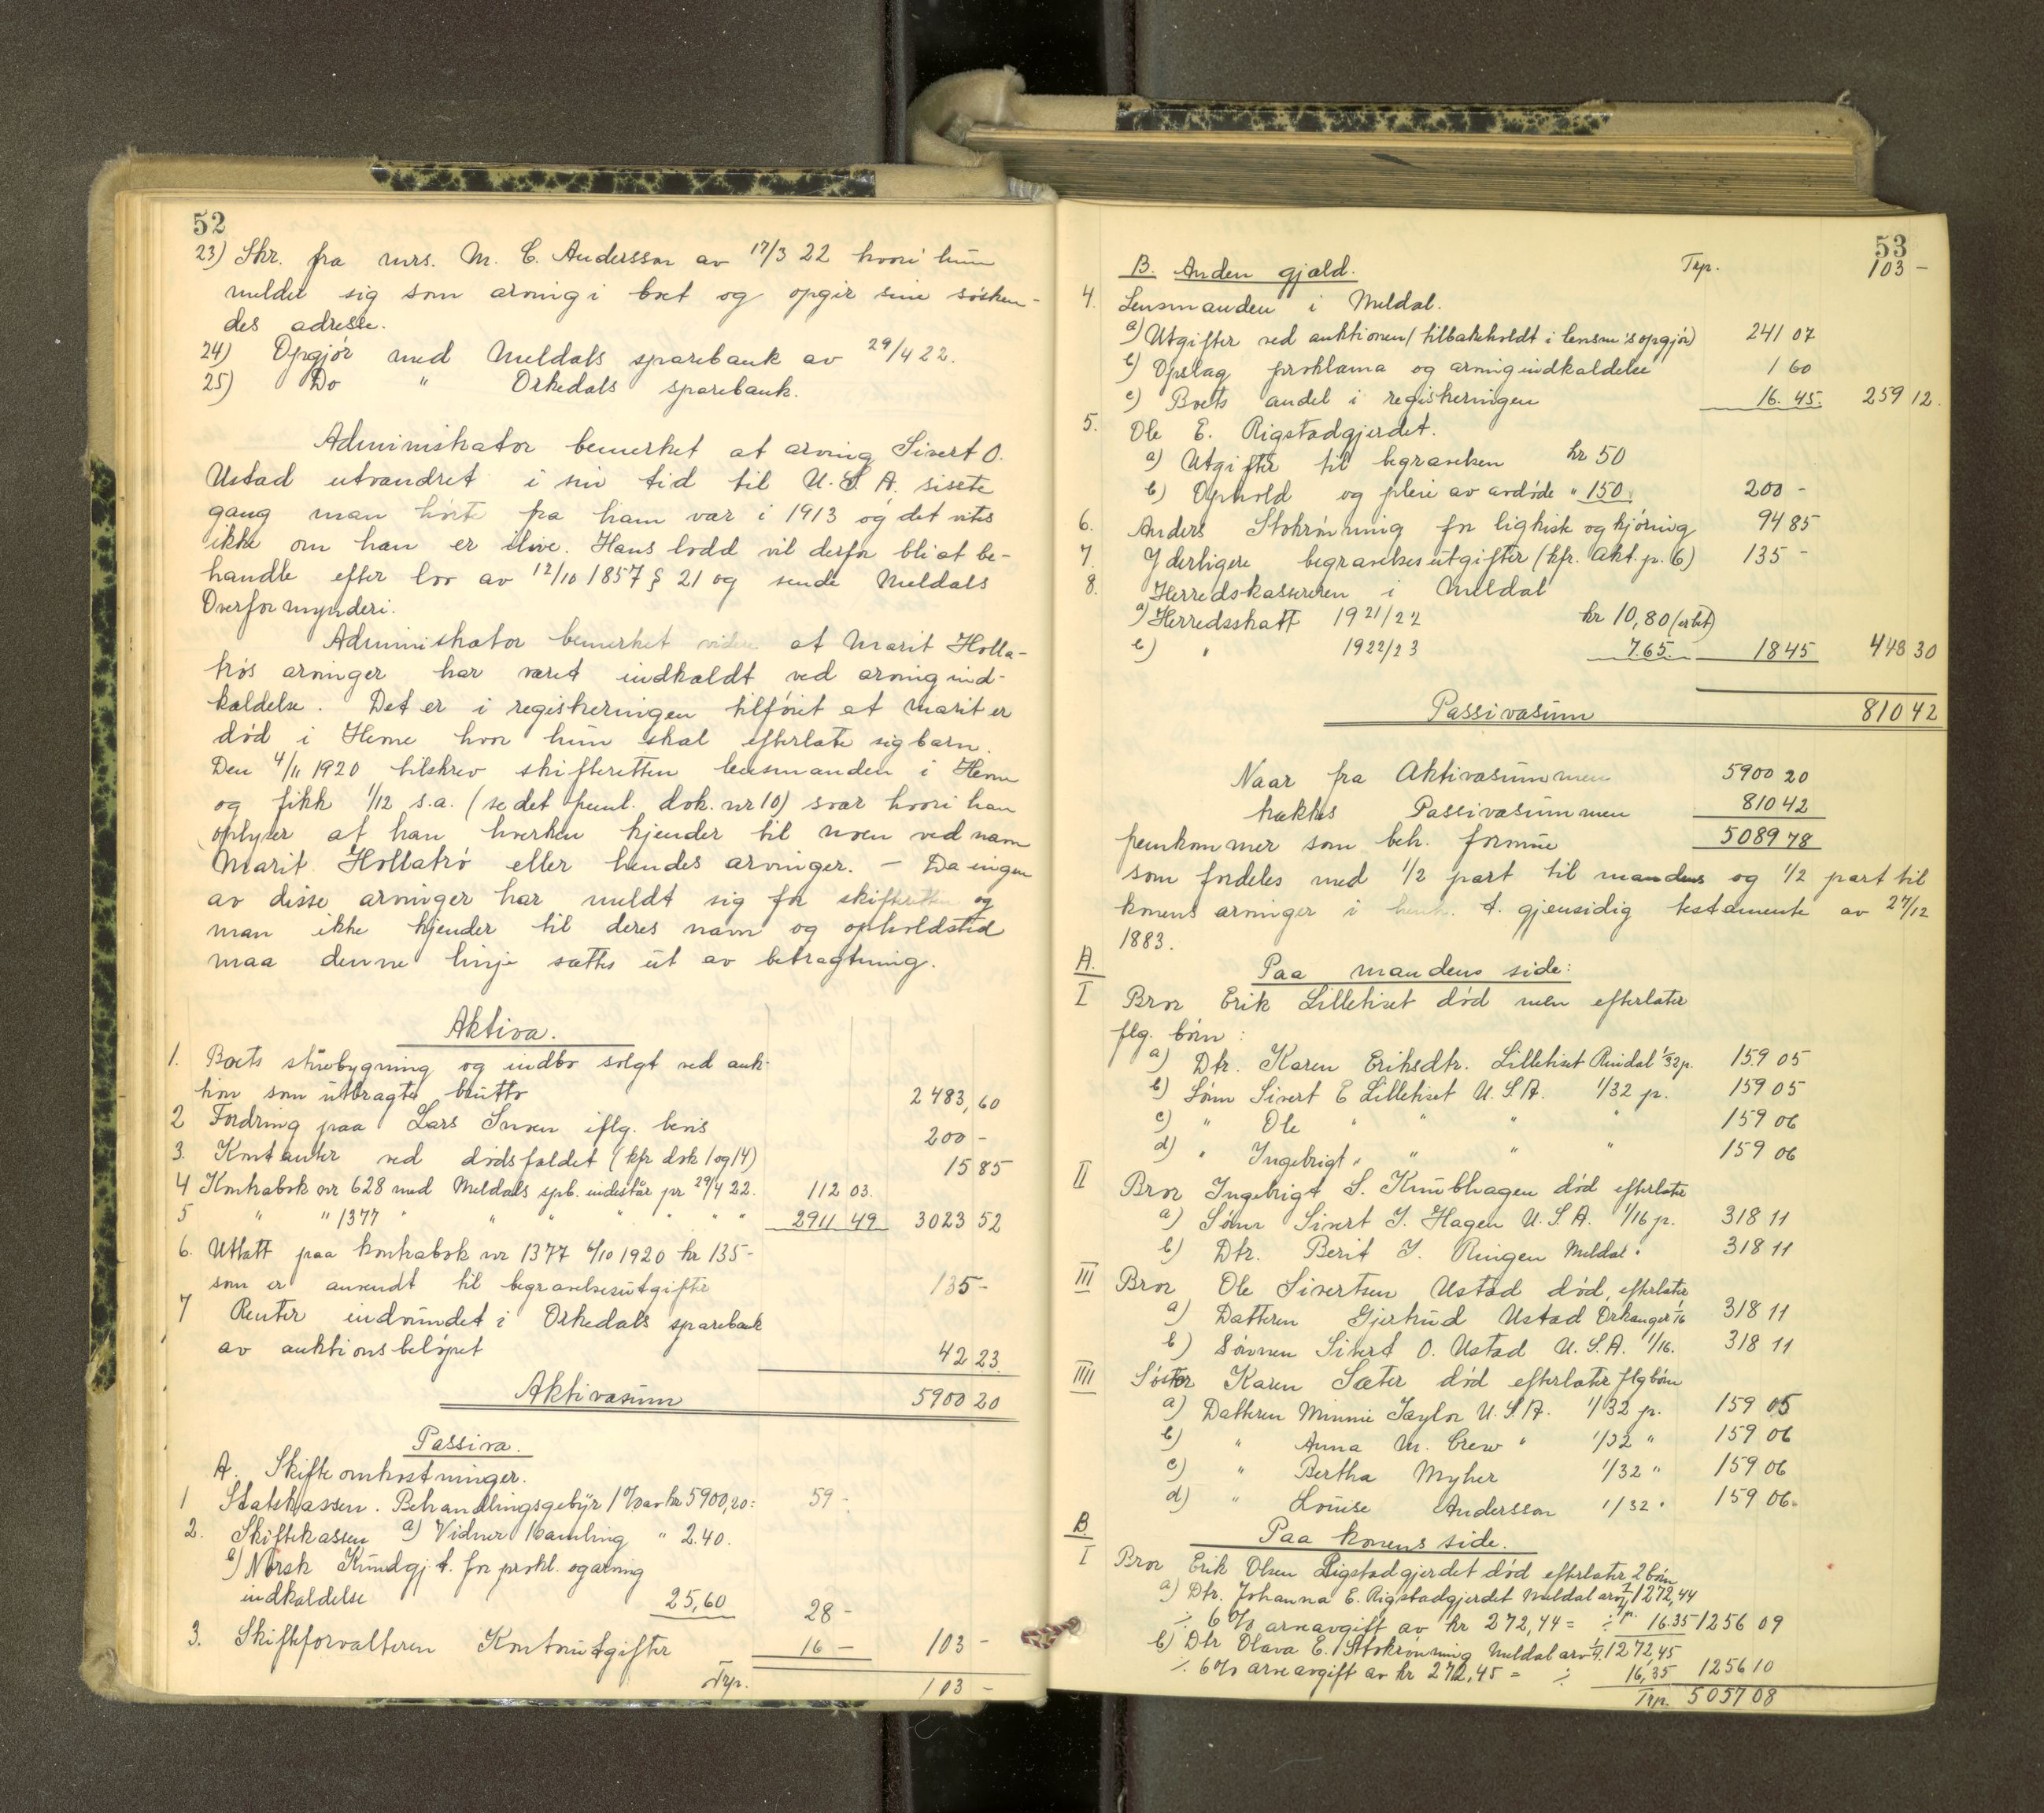 52
23) Skr. fra mrs. M. C. Andersson av 17/3 22 hvori hun
melder sig som arving i boet og opgir sine søsken-
des adresse.
24) Opgjør med Meldals sparebank av 29/4 22.
25) Do " Orkedals sparebank.
Administrator bemerket at arving Sivert O.
Ustad utvandret i sin tid til U.S.A. siste
gang man hørte fra ham var i 1913 og det vites
ikke om han er ilive. Hans lodd vil derfor bli at be-
handle efter lov av 12/10 1857 § 21 og sende Meldals
Overformynderi.
Administrator bemerket videre at Marit Holla-
trøs arvinger har været indkaldt ved arvingind-
kaldelse. Det er i registreringen tilføiet at Marit er
død i Hemne hvor hun skal efterlate sig barn.
Den 4/11 1920 tilskrev skifteretten lensmanden i Hemne
og fikk 1/12 s.a. (se det freml. dok. nr 10) svar hvori han
oplyser at han hverken kjender til noen ved navn
Marit Hollatrø eller hendes arvinger. — Da ingen
av disse arvinger har meldt sig for skifteretten og
man ikke kjender til deres navn og opholdsted
maa denne linje sættes ut av betragtning.
Aktiva.
1. Boets stuebygning og indbo solgt ved auk-
tion som utbragte brutto 2483,60
2 Fordring paa Lars Snoen iflg. bevis 200 -
3. Kontanter ved dødsfaldet (kfr dok 1 og 14) 15 85
4 Kontrabok nr 628 med Meldals spb. indestår pr 29/4 22. 112 03.
5 " " 1377 " " " " " " 2911 49 3023 52
6. Uttatt paa kontrabok nr 1377 6/10 1920 kr 135-
som er anvendt til begravelsesutgifter 135-
7 Renter indvundet i Orkedals sparebank
av auktionsbeløpet 42 23.
Aktivasum 5900 20
Passiva.
A. Skifteomkostninger.
1 Statskassen. Behandlingsgebyr 1% av kr 5900,20: 59 -
2. Skiftekassen a) Vidner 1 samling " 2.40.
b) Norsk Kundgj. t. for prokl. og arving
indkaldelse 25,60 28 -
3. Skifteforvalteren Kontorutgifter 16 — 103 -
Trp. 103 -
53
B. Anden gjæld. Trp. 103 -
4. Lensmanden i Meldal.
a) Utgifter ved auktionen (tilbakeholdt i lensm's opgjør) 241 07
b) Opslag proklama og arvingindkaldelse 1 60
c) Boets andel i registreringen 16. 45. 259 12.
5. Ole E. Rigstadgjerdet.
a) Utgifter til begravelsen kr 50
b) Ophold og pleie av avdøde " 150. 200 -
6. Anders Stokrønning for ligkiste og kjøring 94 85
7. Yderligere begravelsesutgifter (kfr. Akt. p. 6) 135 -
8. Herredskassereren i Meldal
a) Herredsskatt 1921/22 kr 10,80 (er bet)
b) " 1922/23 7.65. 18 45 448 30
Passivasum 810 42
Naar fra Aktivasummen 5900 20
trækkes Passivasummen 810 42
fremkommer som beh. formue 5089 78
som fordeles med 1/2 part til mandens og 1/2 part til
konens arvinger i henh. t. gjensidig testamente av 27/12
1883.
A. Paa mandens side:
I Bror Erik Lilletiset død men efterlater
flg. børn:
a) Dtr. Karen Eriksdtr. Lilletiset Rindal 1/32 p. 159 05
b) Sønn Sivert E Lilletiset U.S.A. 1/32 p. 159 05
c) " Ole " " " " 159 06
d) " Ingebrigt " " " " 159 06
II Bror Ingebrigt S. Knubhagen død efterlater
a) Sønn Sivert I. Hagen U.S.A. 1/16 p. 318 11
b) Dtr. Berit I. Ringen Meldal " 318 11
III Bror Ole Sivertsen Ustad død, efterlater
a) Datteren Gjertrud Ustad Orkanger 1/16 318 11
b) Sønnen Sivert O. Ustad U.S.A. 1/16. 318 11
IIII Søster Karen Sæter død efterlater flg børn
a) Datteren Minnie Taylor U.S.A. 1/32 p. 159 05
b) " Anna M. Crew " 1/32 " 159 06
c) " Bertha Myher 1/32 " 159 06
d) " Louise Andersson 1/32 " 159 06
B. Paa konens side.
I Bror Erik Olsen Rigstadgjerdet død efterlater 2 børn
a) Dtr. Johanna E. Rigstadgjerdet Meldal arv 1/4 p. 1272,44
÷ 6% arveavgift av kr 272,44 = ÷ 16.35 1256 09
b) Dtr Olava E. Stokrønning Meldal arv 1/4. 1272,45
÷ 6% arveavgift av kr 272,45 = ÷ 16,35 1256 10
Trp. 5057 08